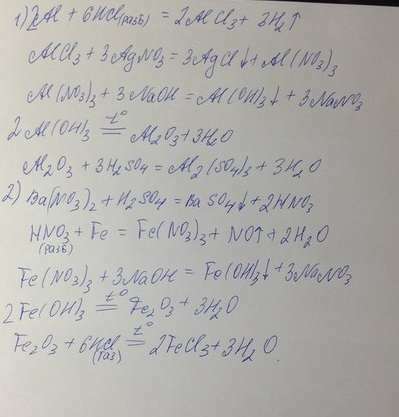 1) 2Al + 6HCl(разб) = 2AlCl₃ + 3H₂↑
AlCl₃ + 3AgNO₃ = 3AgCl↓ + Al(NO₃)₃
Al(NO₃)₃ + 3NaOH = Al(OH)₃↓ + 3NaNO₃
2Al(OH)₃ =t°= Al₂O₃ + 3H₂O
Al₂O₃ + 3H₂SO₄ = Al₂(SO₄)₃ + 3H₂O
2) Ba(NO₃)₂ + H₂SO₄ = BaSO₄↓ + 2HNO₃
HNO₃(разб) + Fe = Fe(NO₃)₃ + NO↑ + 2H₂O
Fe(NO₃)₃ + 3NaOH = Fe(OH)₃↓ + 3NaNO₃
2Fe(OH)₃ =t°= Fe₂O₃ + 3H₂O
Fe₂O₃ + 6HCl(газ) =t°= 2FeCl₃ + 3H₂O